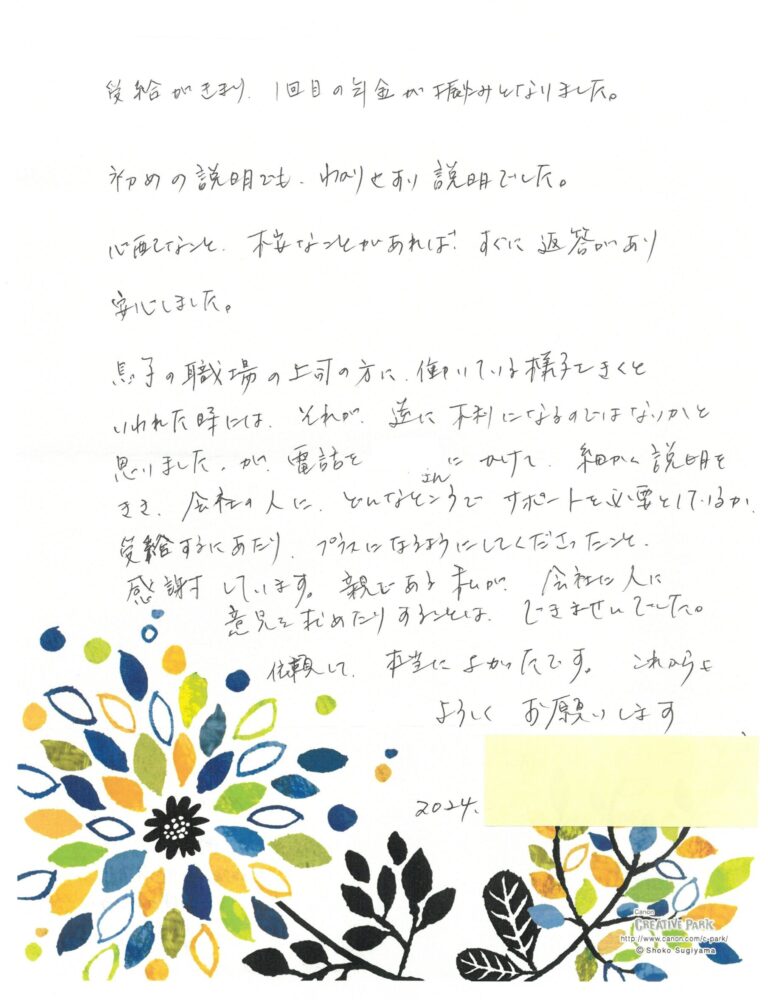 受給がきまり、1回目の年金が振込みとなりました。
初めの説明でも、わかりやすい説明でした。
心配なこと、不安なことがあれば、すぐに返答があり
安心しました。
息子の職場の上司の方に、働いている様子をきくと
いわれた時には、それが、逆に不利になるのではないかと
思いました。が、電話を さんに かけて、細かく説明を
きき、会社の人に、どんなところで サポートを必要としているか、
受給するにあたり、プラスになるようにしてくださったこと、
感謝しています。親である私が、会社に人に
意見を求めたりすることは、できませんでした。
依頼して、本当によかったです。これからも
よろしく お願いします
2024.
Canon
CREATIVE PARK
http://www.canon.com/c-park/
© Shoko Sugiyama